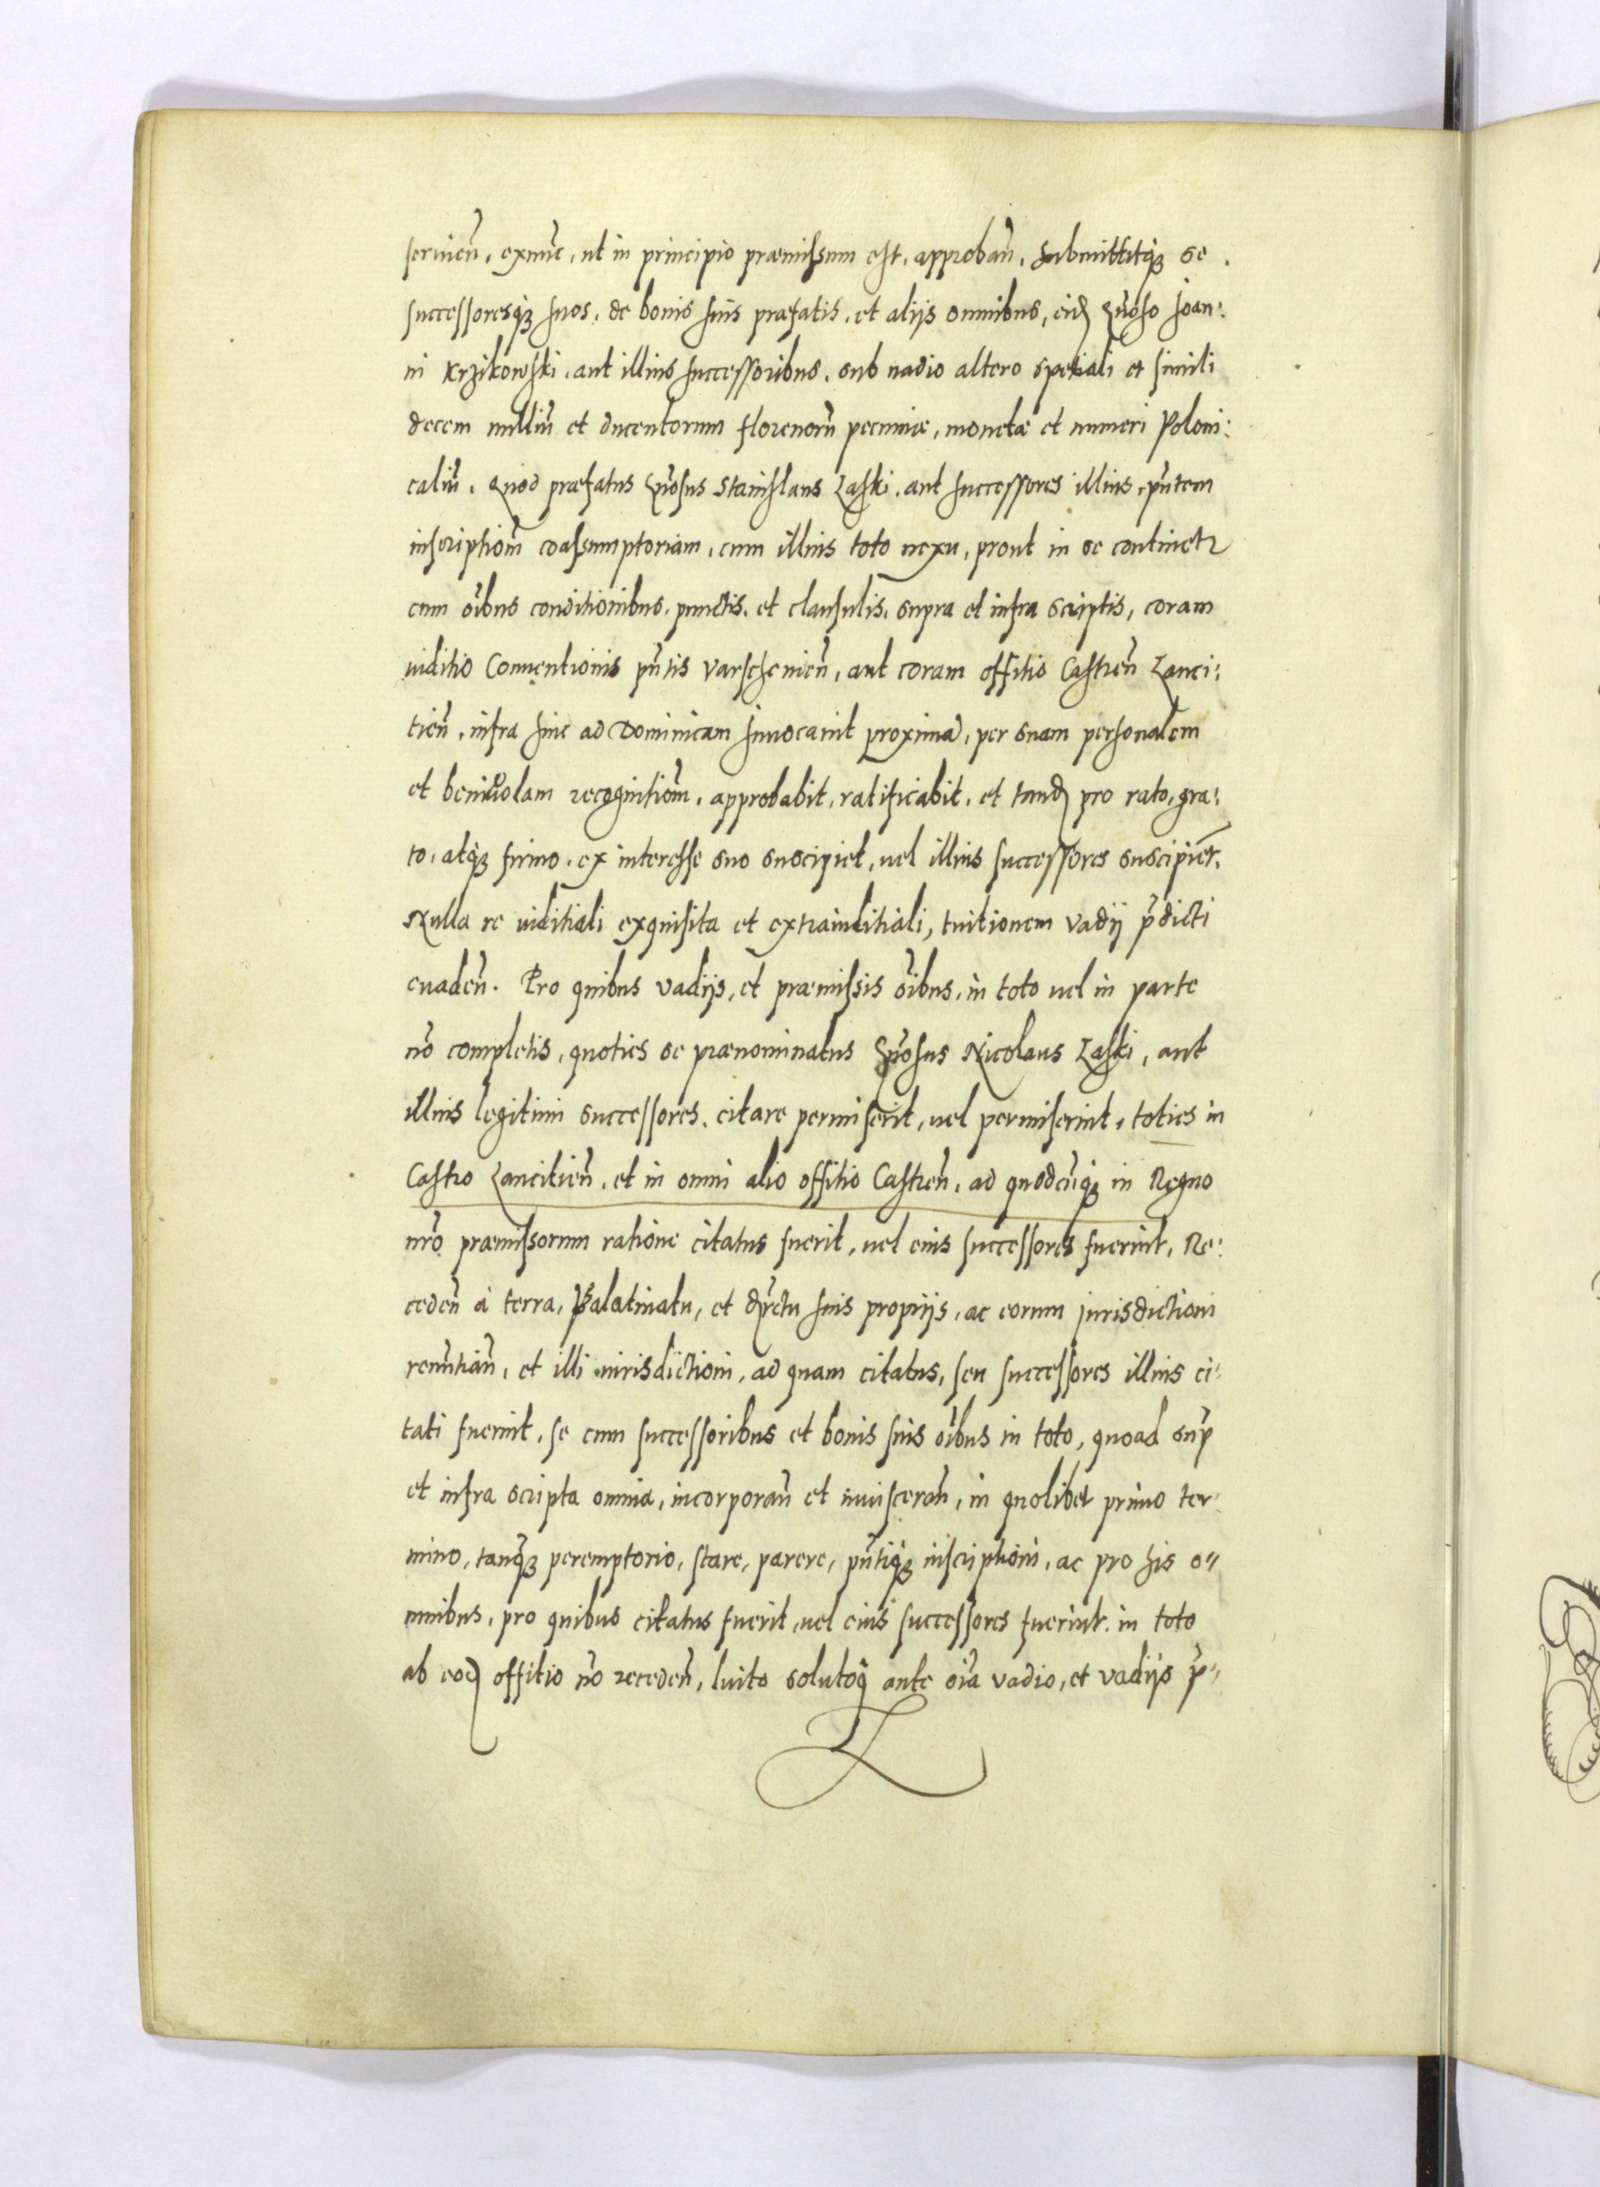 seruien̄, exnūc, ut in principio præmissum est, approban̄, submittitqꝫ se
successoresqꝫ suos, de bonis suis præfatis, et alijs omnibus, eid Gn̄oso Joan:
ni Krzikowski, aut illius successoribus, sub uadio altero spetiali et simili
decem milliū et ducentorum florenorū pecuniæ, monetæ et numeri Poloni:
caliū. Quod præfatus Gn̄osus Stanislaus Laski, aut successores illius, pn̄tem
inscriptiōm coassumptoriam, cum illius toto nexu, prout in se continetr
cum oībus conditionibus, punctis, et clausulis, supra et infra scriptis, coram
iuditio Conuentionis pn̄tis Varscheuien̄, aut coram offitio Castren̄ Lanci:
tien̄, infra hinc ad Dominicam Inuocauit proximā, per suam personalem
et beniuolam recognitiōm, approbabit, ratificabit, et tand pro rato, gra:
to, atqꝫ firmo, ex interesse suo suscipiet, uel illius successores suscipiēt.
Nulla re iuditiali exquisita et extraiuditiali, euitionem Vadij p̄dicti
euaden̄. Pro quibus Vadijs, et præmissis oībus, in toto uel in parte
nō completis, quoties se prænominatus Gn̄osus Nicolaus Laski, aut
illius legitimi successores, citare permiserit, uel permiserint, toties in
Castro Lancitien̄, et in omni alio offitio Castren̄, ad quodcūqꝫ in Regno
nrō præmissorum ratione citatus fuerit, uel eius successores fuerint, Re:
ceden̄ á terra, Palatinatu, et dʼrctu suis proprijs, ac eorum jurisdictioni
renūtian̄, et illi iurisdictioni, ad quam citatus, seu successores illius ci:
tati fuerint, se cum successoribus et bonis suis oībus in toto, quoad sup̄
et infra scripta omnia, incorporan̄ et inuisceran̄, in quolibet primo ter:
mino, tanqꝫ peremptorio, stare, parere, pn̄tiqꝫ inscriptioni, ac pro his o:
mnibus, pro quibus citatus fuerit, uel eius successores fuerint. in toto
ab eod offitio nō receden̄, luito solutoq̄ ante oīa vadio, et vadijs p̄: